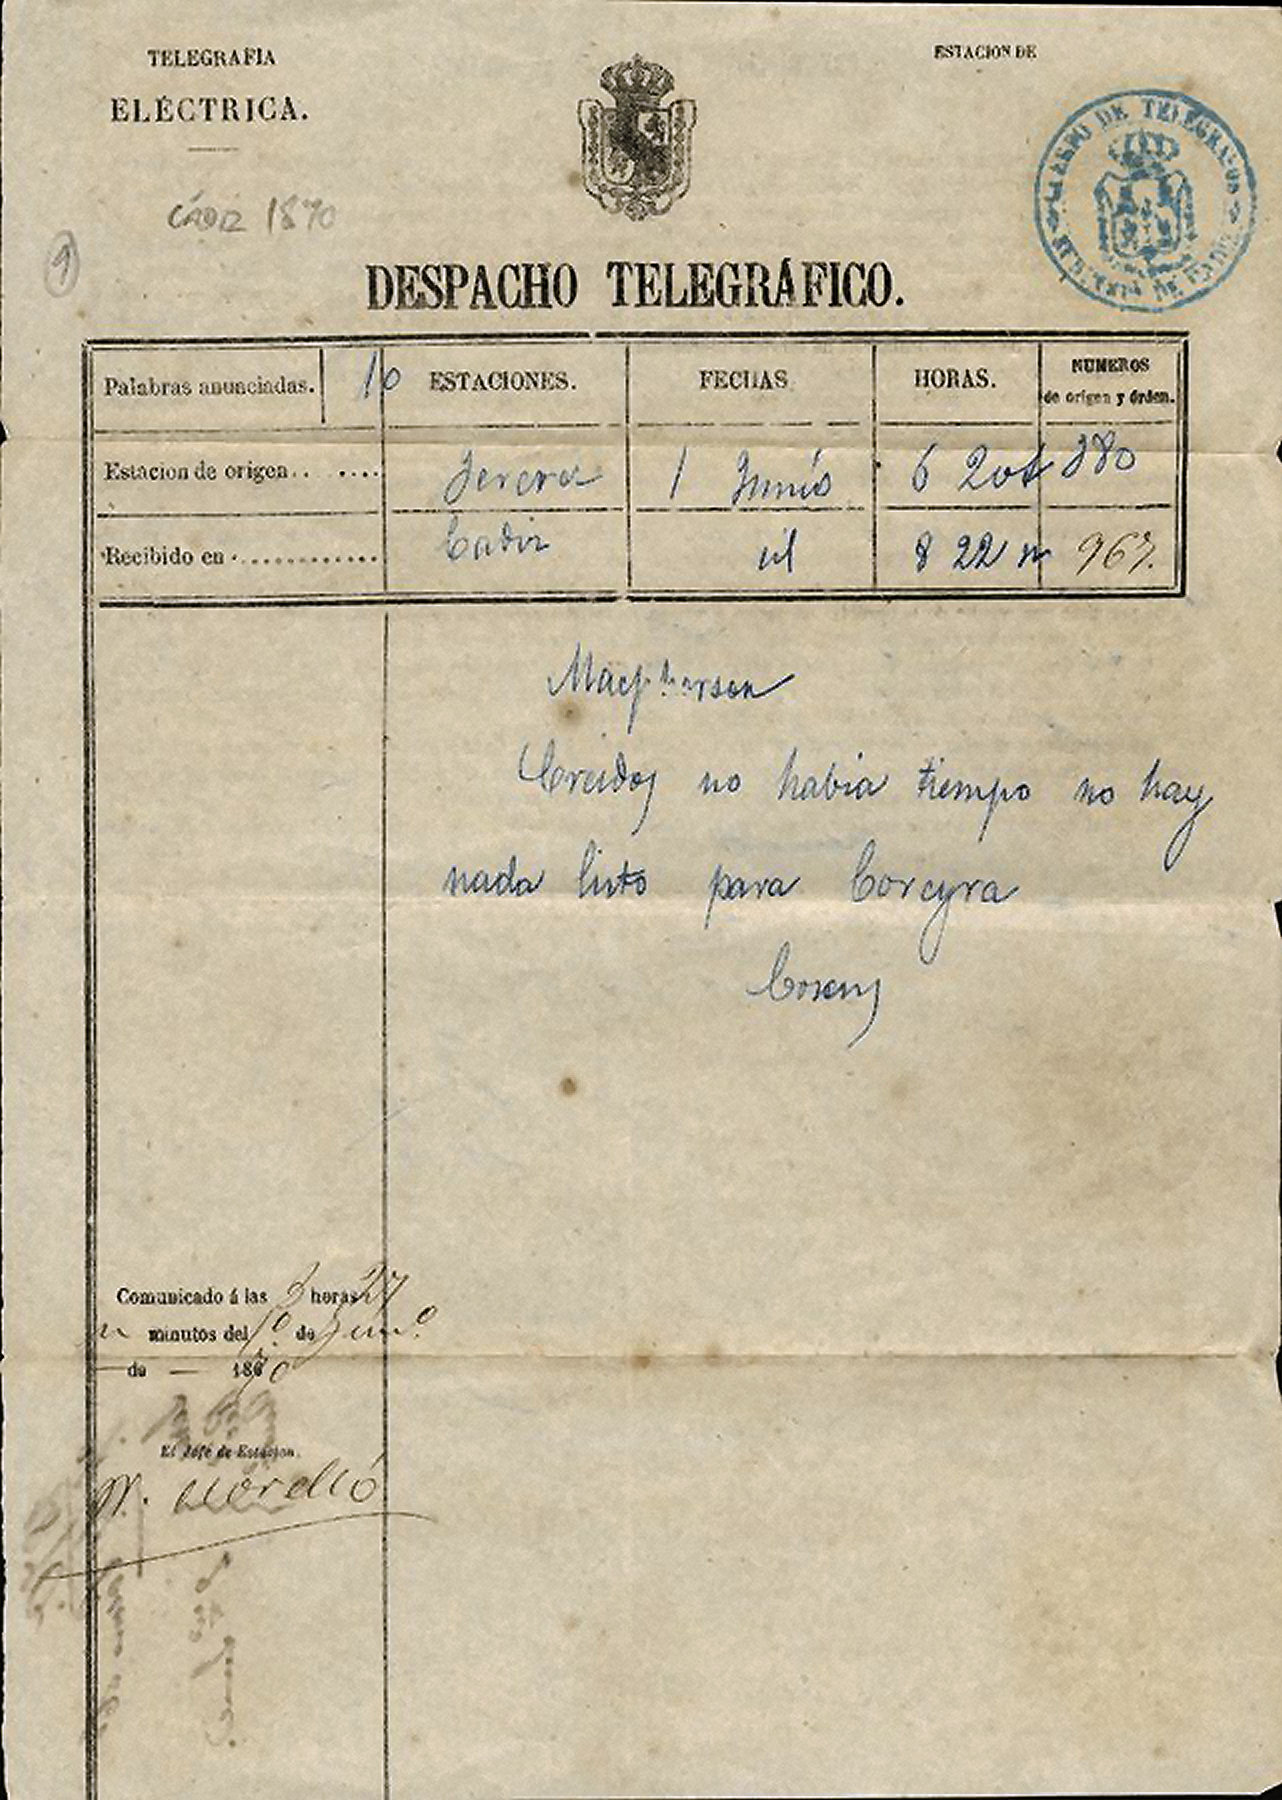 TELEGRAFIA
ELÉCTRICA.
ESTACION DE
CUERPO DE TELEGRAFOS
CÁDIZ 1870
9
DESPACHO TELEGRÁFICO.
Palabras anunciadas. 10 ESTACIONES. FECHAS HORAS. NUMEROS
de origen y órden.
Estacion de origen.. .... Jerez 1 Junio 6 20t 380
Recibido en ............. Cadiz id 8 22 n 967.
Macpherson
Creidos no habia tiempo no hay
nada listo para Corcyra
Cosens
Comunicado á las 8 horas 27
n minutos del 1º de Junº
de — 1870
El Jefe de Estacion.